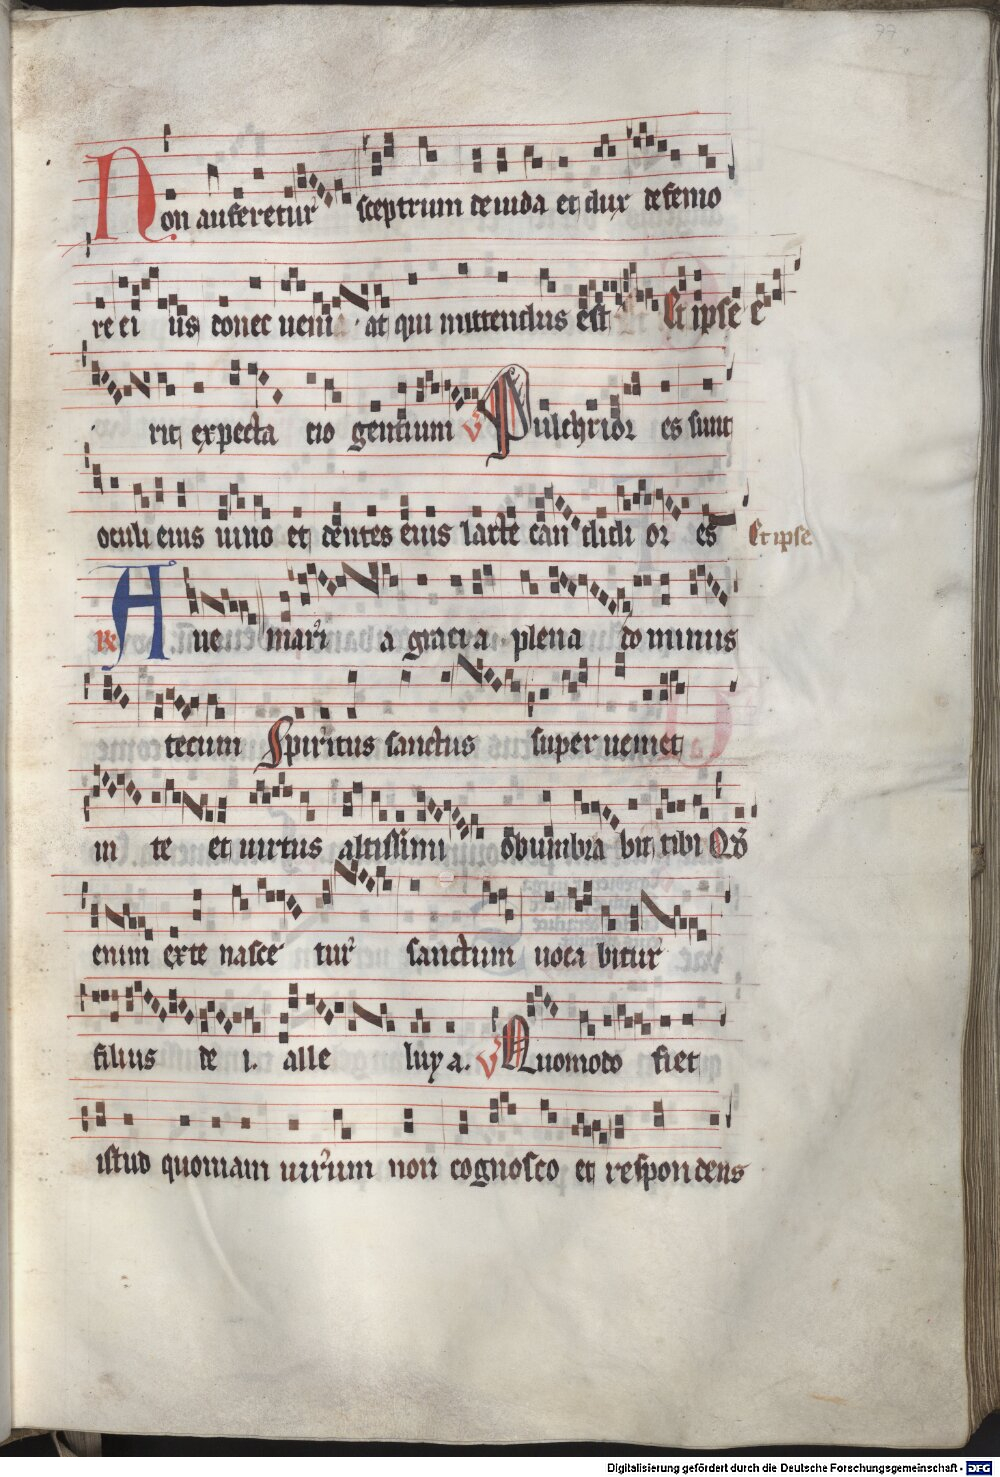 77
Non auferetur sceptrum de iuda et dux de femo
re ei us donec ueni at qui mittendus est Et ipse e
rit expecta tio gentium V Pulchrior es sunt
oculi eius uino et dentes eius lacte can didi or es Et ipse
R Aue mari a gracia plena do minus
tecum Spiritus sanctus super ueniet
in te et uirtus altissimi obumbra bit tibi Qd
enim ex te nasce tur sanctum uoca bitur
filius de i. alle luya. V Quomodo fiet
istud quoniam uirum non cognosco et respondens
Digitalisierung gefördert durch die Deutsche Forschungsgemeinschaft - DFG